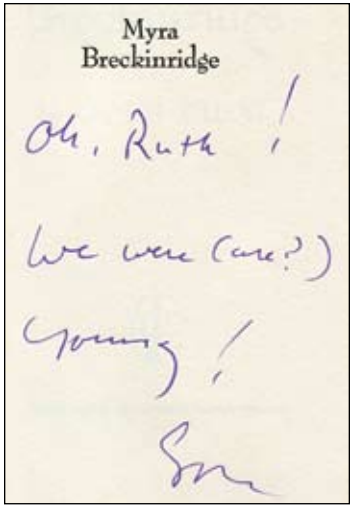 Myra
Breckinridge
Oh, Ruth !
We were (are?)
Young !
Gore